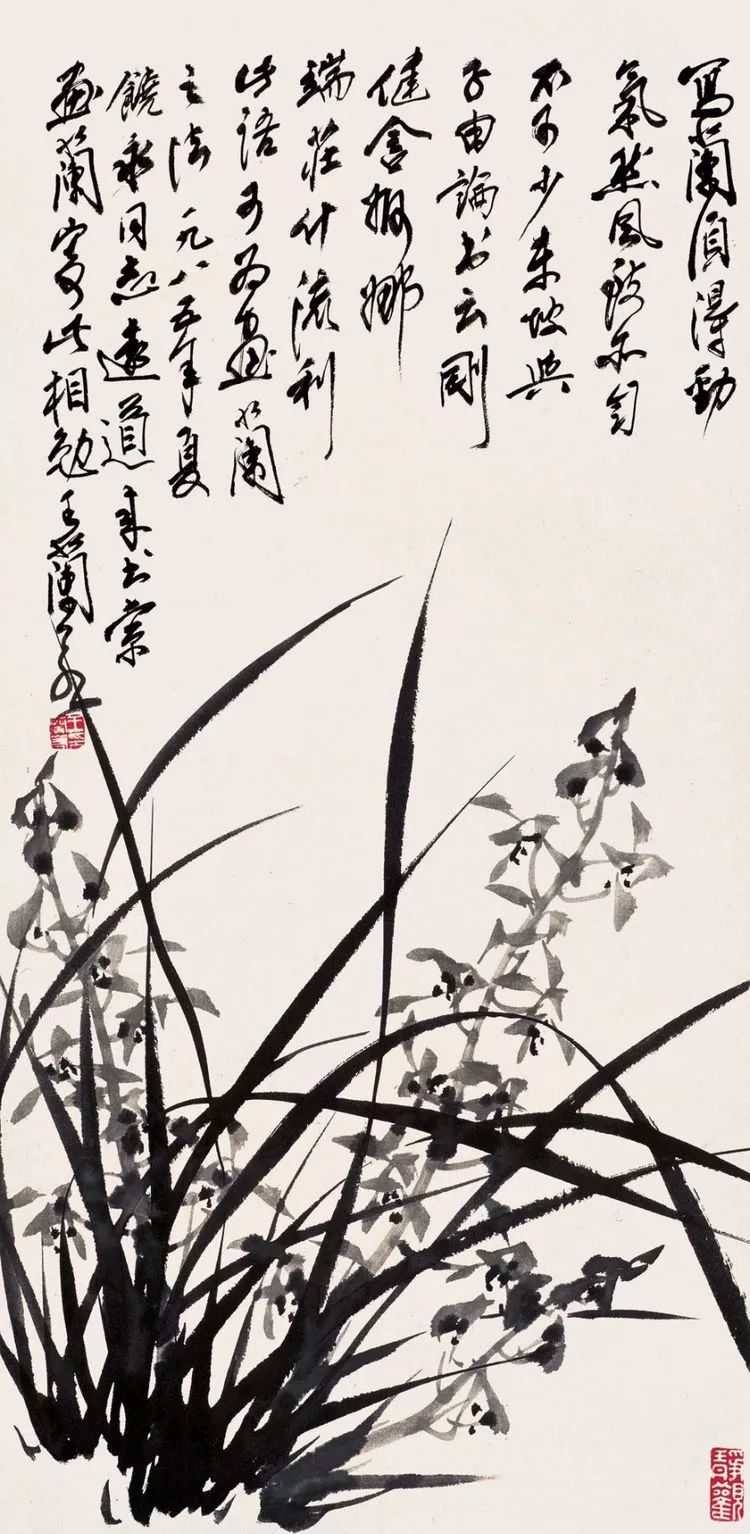 寫蘭須得勁
氣然風致亦自
不可少東坡與
子由論书云剛
健含婀娜
端莊什流利
此語可为畫蘭
之法一九八五年夏
饒永同志遠道来书索
画蘭寫此相勉王蘭若
靜觀